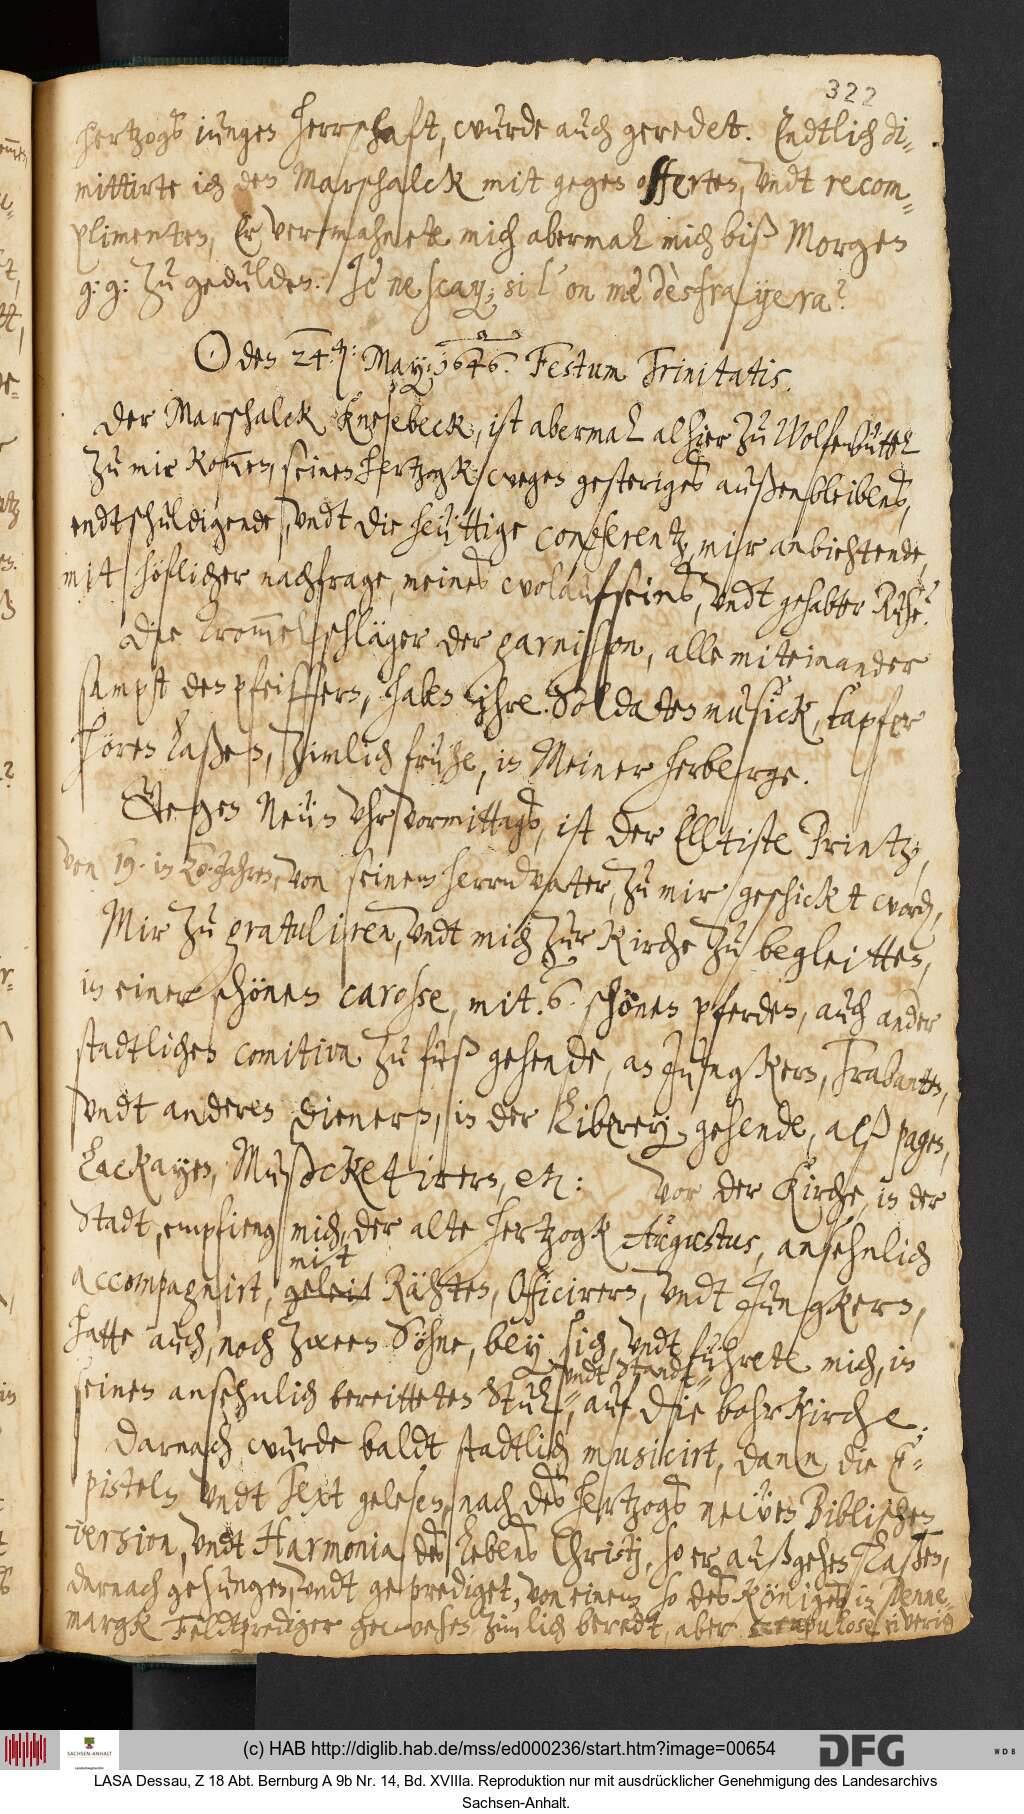 322
hertzogs jungen herrschaft, wurde auch geredet. Endtlich di-
mittirte ich den Marschalck mit gegen offerten, undt recom-
plimenten, Er vermahnete mich abermal mich biß Morgen
g: g: zu gedulden. Je ne sçay, si l'on me desfrayera?
☉ den 24. May: 1646. Festum Trinitatis.
Der Marschalck Knesebeck, ist abermal alhier zu Wolfenbüttel
zu mir kommen, seines Hertzogk: wegen gesteriges außenbleibens,
endtschuldigende, undt die heüttige conferentz, mir anbiehtende,
mit höflicher nachfrage, meines wolaufseins, undt gehabter Ruhe.
Die Trommelschläger der garnison, alle miteinander
sampt den pfeiffern, haben ihre Soldaten musick, tapfer
hören laßen, zimlich frühe, in Meiner herberge.
Gegen Neün Uhr vormittags, ist der Elltiste Printz,
von 19. in 20 Jahren, von seinem herrn Vater, zu mir geschickt word,
Mir zu gratuliren, undt mich zur Kirche zu begleitten,
in einer schönen carosse, mit 6. schönen pferden, auch ander
stadtlichen comitiva zu fuß gehende, an Jungkern, Trabanten,
undt anderen dienern, in der Liberey gehende, alß pagen,
Lackayen, Mußcketirern, etc: Vor der Kirche, in der
Stadt, empfieng mich, der alte Hertzogk Augustus, ansehnlich
mit
accompagnirt, geleit Rähten, Officirern, undt Jungkern,
hatte auch, noch zween Söhne, bey sich, undt führete mich, in
undt Standt
seinen ansehnlich bereitteten Stuhl, auf die bohrkirche.
Darnach wurde baldt stadtlich musicirt, dann die E-
pisteln undt Text gelesen, nach des Hertzogs neüen Biblischen
version, undt Harmonia des Lebens Christj, so er außgehen laßen,
darnach gesungen, undt geprediget, von einem so des Königes in Denne-
margk Feldtprediger gewesen, zimlich beredt, aber scrupulose,
(c) HAB http://diglib.hab.de/mss/ed000236/start.htm?image=00654
SACHSEN-ANHALT
DFG
WDB
LASA Dessau, Z 18 Abt. Bernburg A 9b Nr. 14, Bd. XVIIIa. Reproduktion nur mit ausdrücklicher Genehmigung des Landesarchivs
Sachsen-Anhalt.